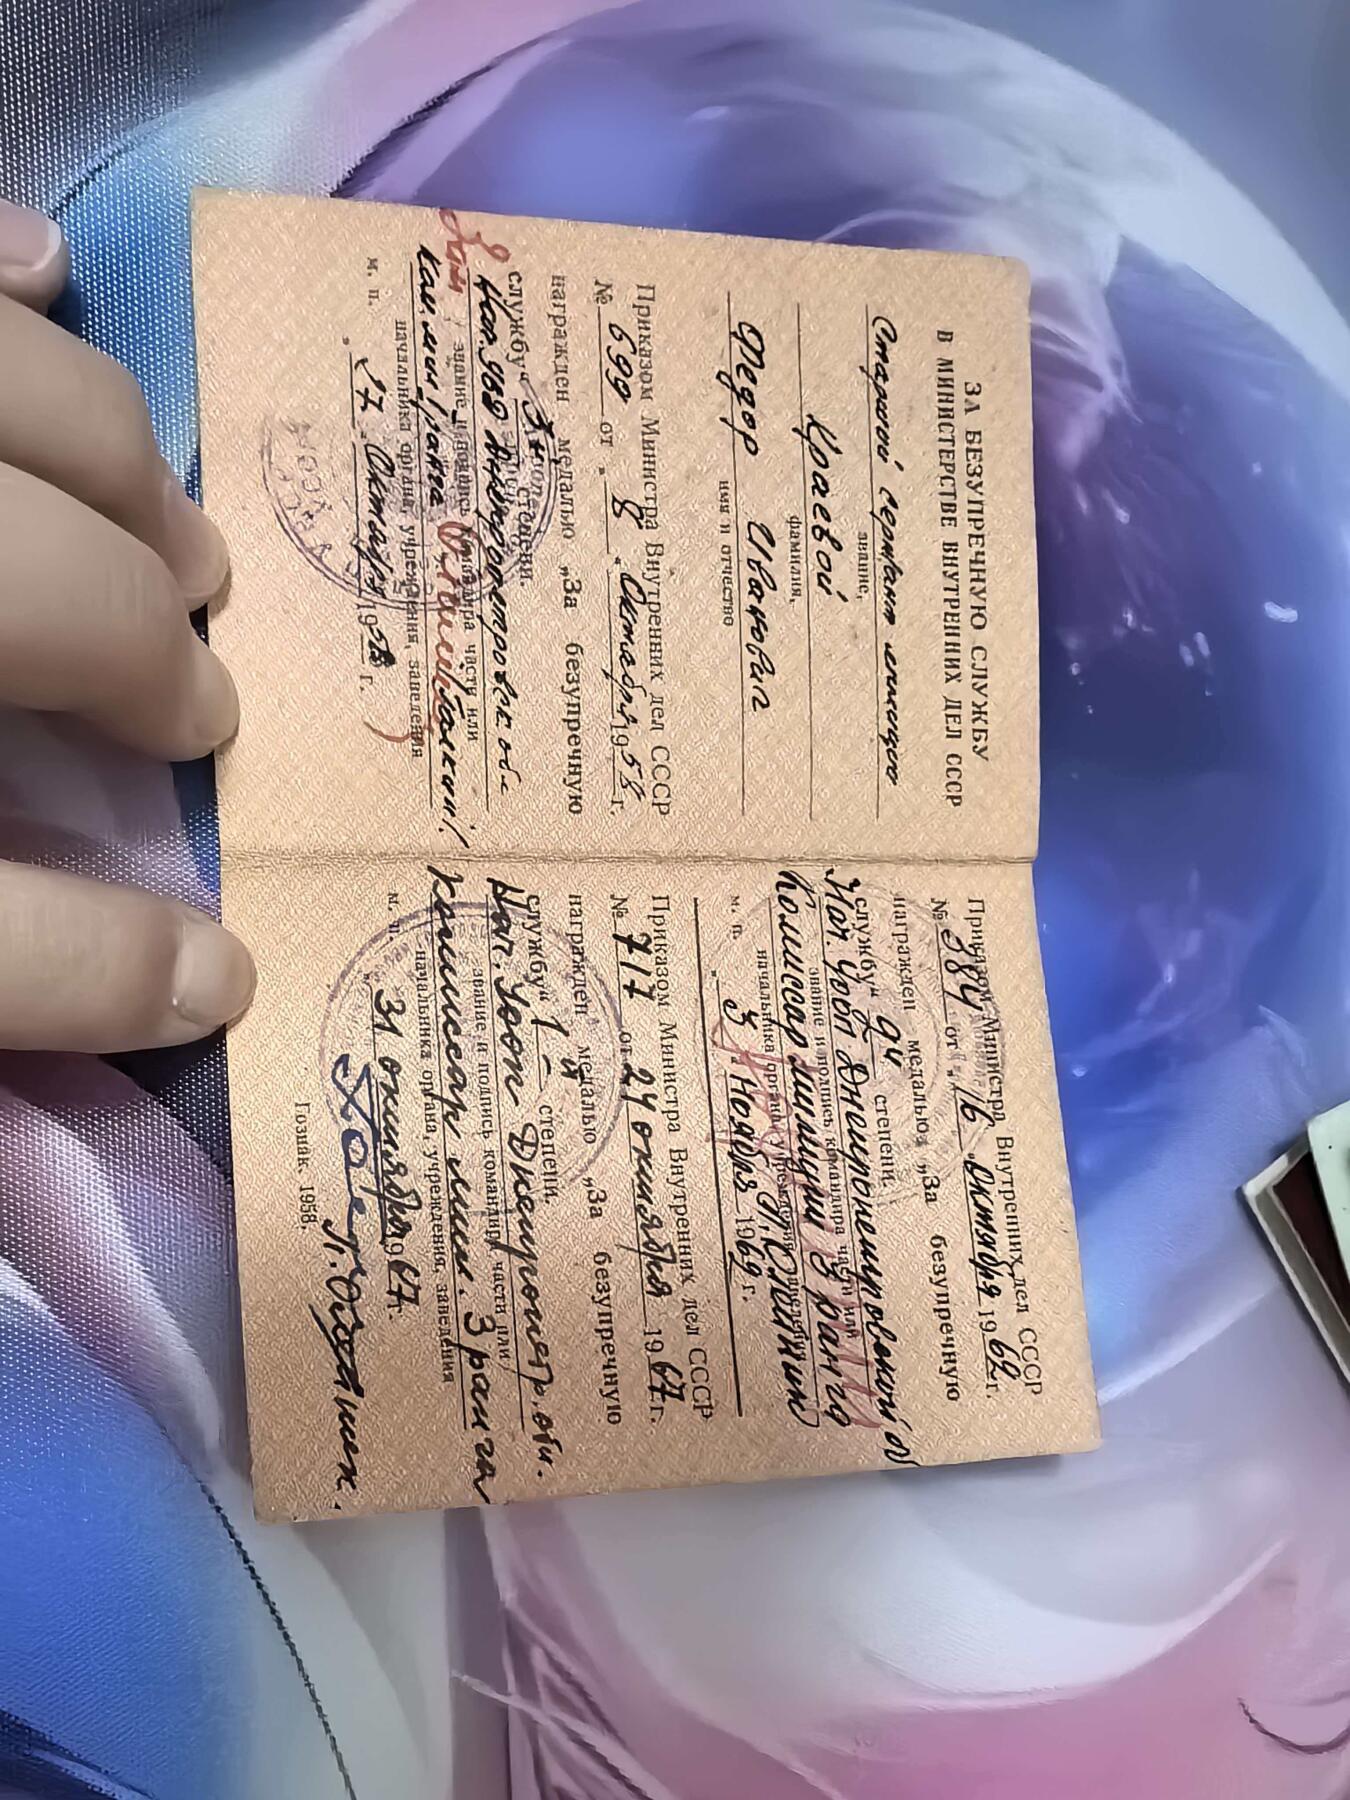 ЗА БЕЗУПРЕЧНУЮ СЛУЖБУ
В МИНИСТЕРСТВЕ ВНУТРЕННИХ ДЕЛ СССР
Старший сержант милиции
звание,
Краевой
фамилия,
Федор Иванович
имя и отчество
Приказом Министра Внутренних дел СССР
№ 699 от „ 8 " Октября 1958 г.
награжден медалью „За безупречную
службу" 3й степени.
Нач. УВД Днепропетровск. обл
звание и подпись командира части или
Ком. мил. 3 ранга
начальника органа, учреждения, заведения
м. п.
„ 27 " Октября 1958 г.
Приказом Министра Внутренних дел СССР
№ 384 от „ 16 " Октября 1962 г.
награжден медалью „За безупречную
службу" 2й степени.
Нач. УООП Днепропетровской о
звание и подпись командира части или
Комиссар милиции 3 ранга
начальника органа, учреждения, заведения
м. п.
„ 3 " Ноября 1962 г.
Приказом Министра Внутренних дел СССР
№ 717 от 24 октября 1967 г.
награжден медалью „За безупречную
службу" 1й степени.
Нач. УООП Днепропетр. обл.
звание и подпись командира части или
комиссар мил. 3 ранга
начальника органа, учреждения, заведения
м. п.
31 октября 1967 г.
Гознак. 1958.